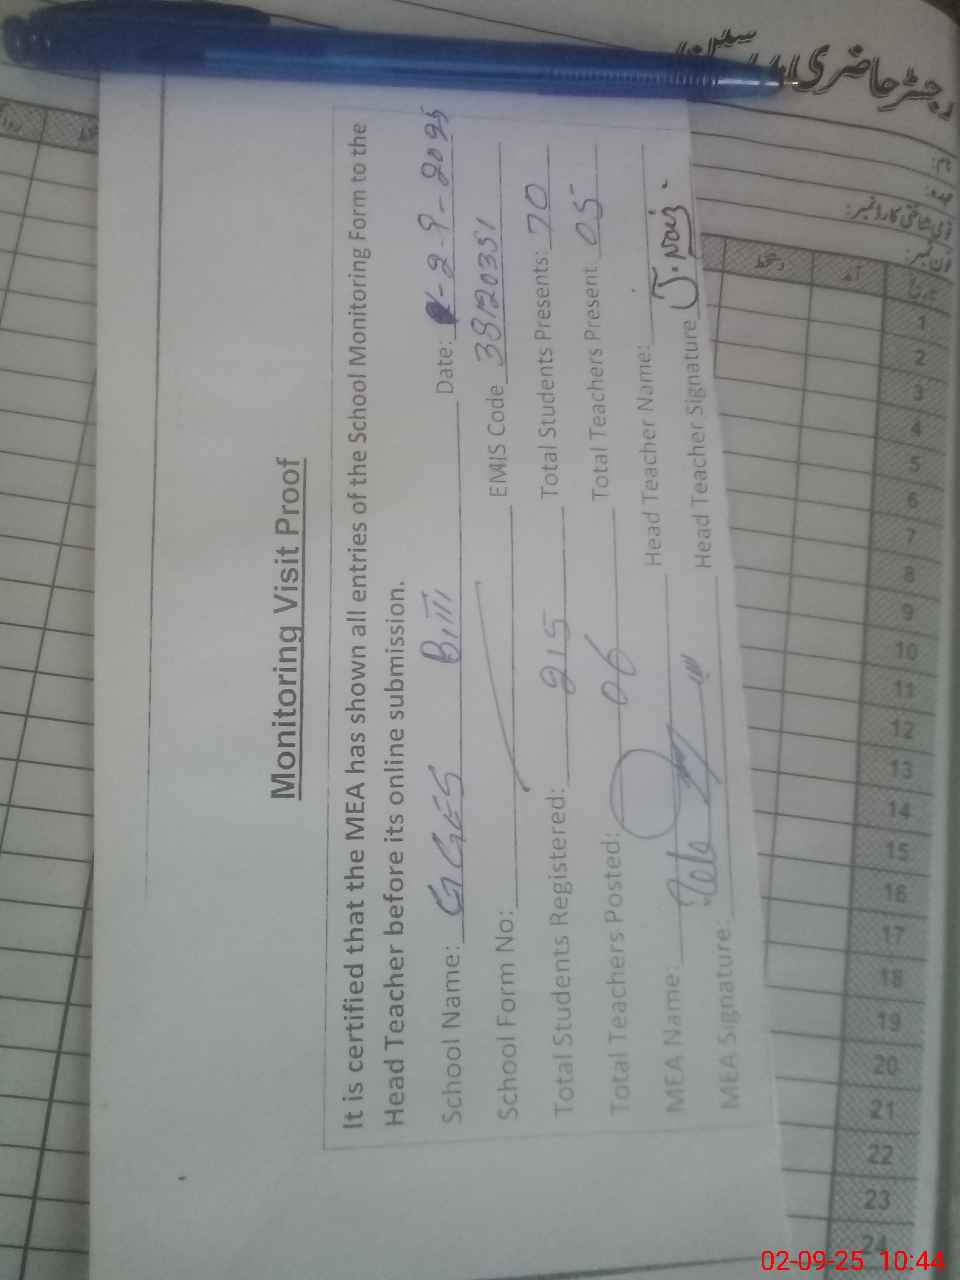 Monitoring Visit Proof
It is certified that the MEA has shown all entries of the School Monitoring Form to the
Head Teacher before its online submission.
School Name: GGES Date: 2-9-2025
School Form No: EMIS Code 38120351
Total Students Registered: 215 Total Students Presents: 70
Total Teachers Posted: 06 Total Teachers Present: 05
MEA Name: Head Teacher Name:
MEA Signature: Head Teacher Signature
رجسٹر حاضری
نام:
عہدہ:
تاریخ
آمد
دستخط
1
2
3
4
5
6
7
8
9
10
11
12
13
14
15
16
17
18
19
20
21
22
23
24
02-09-25 10:44